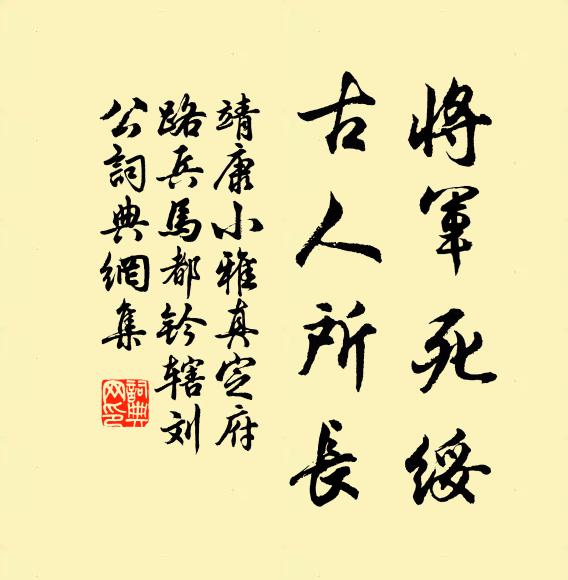 將軍死綏
古人所長
靖康小雅真定府
路兵馬都鈐辖刘
公詞典網集
詞典网印